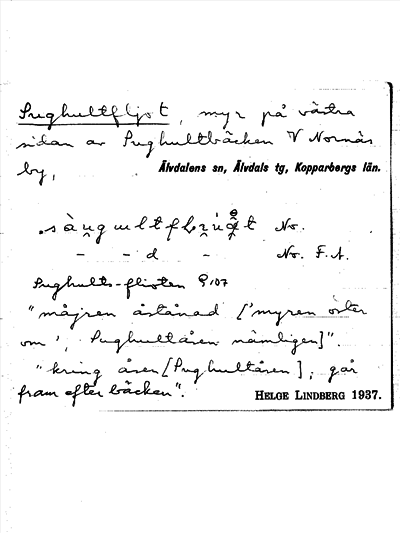 Sughultfljot, myr på västra
sidan av Sughultbäcken V Nornäs
by,
Älvdalens sn, Älvdals tg, Kopparbergs län.
No.
- - d - No. F.A.
Sughults-flioten
"måjren åstånad ['myren öster
om', Sughultåsen nämligen]".
"kring åsen [Sughultåsen], går
fram efter bäcken".
HELGE LINDBERG 1937.